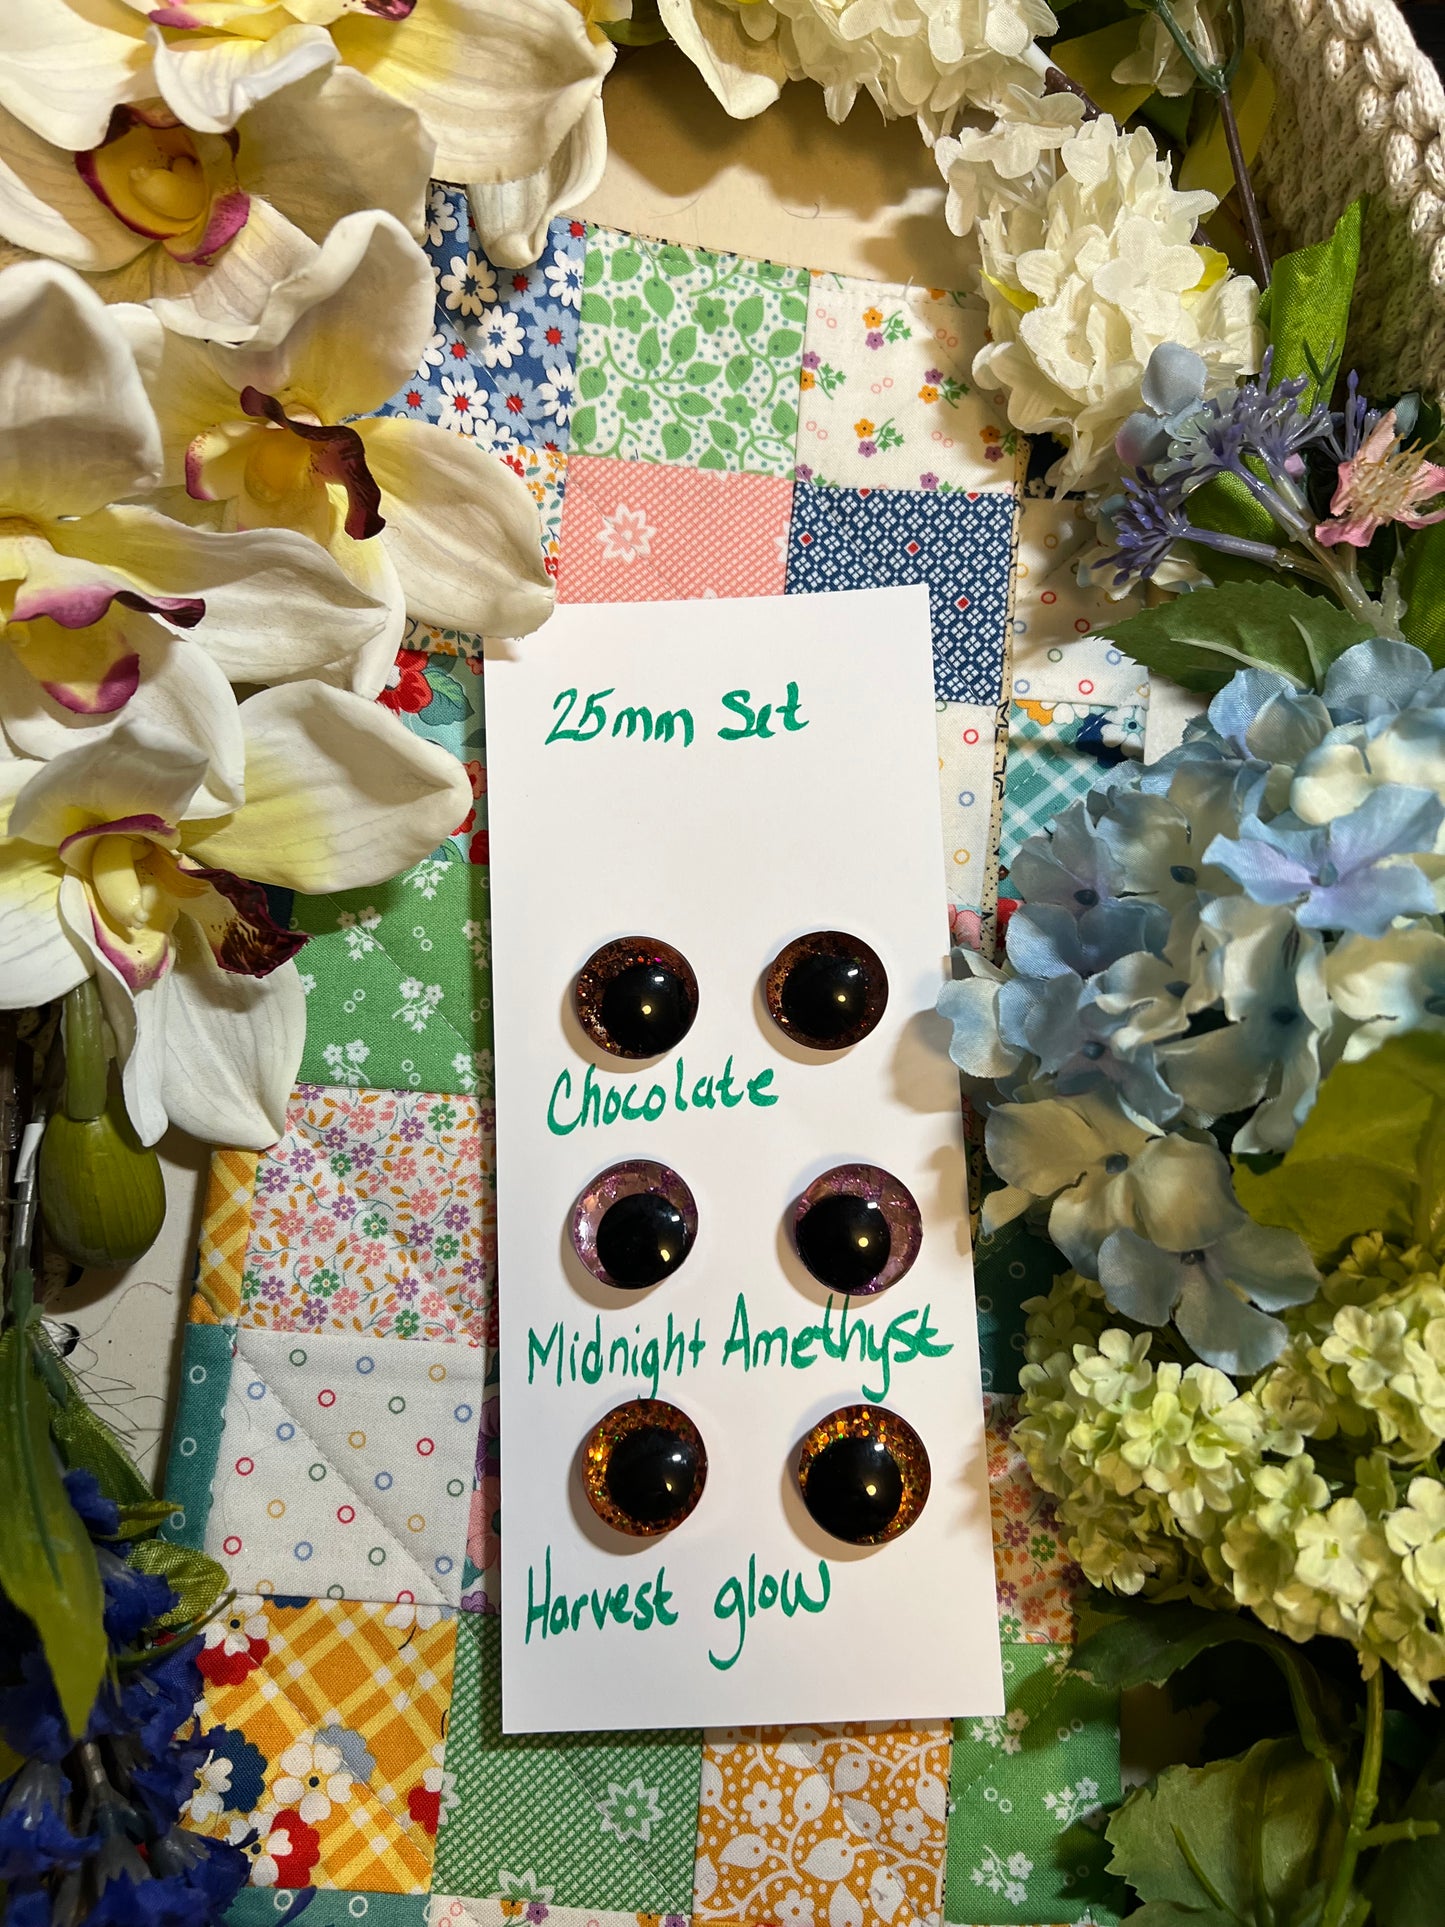 25mm Set
Chocolate
Midnight Amethyst
Harvest glow